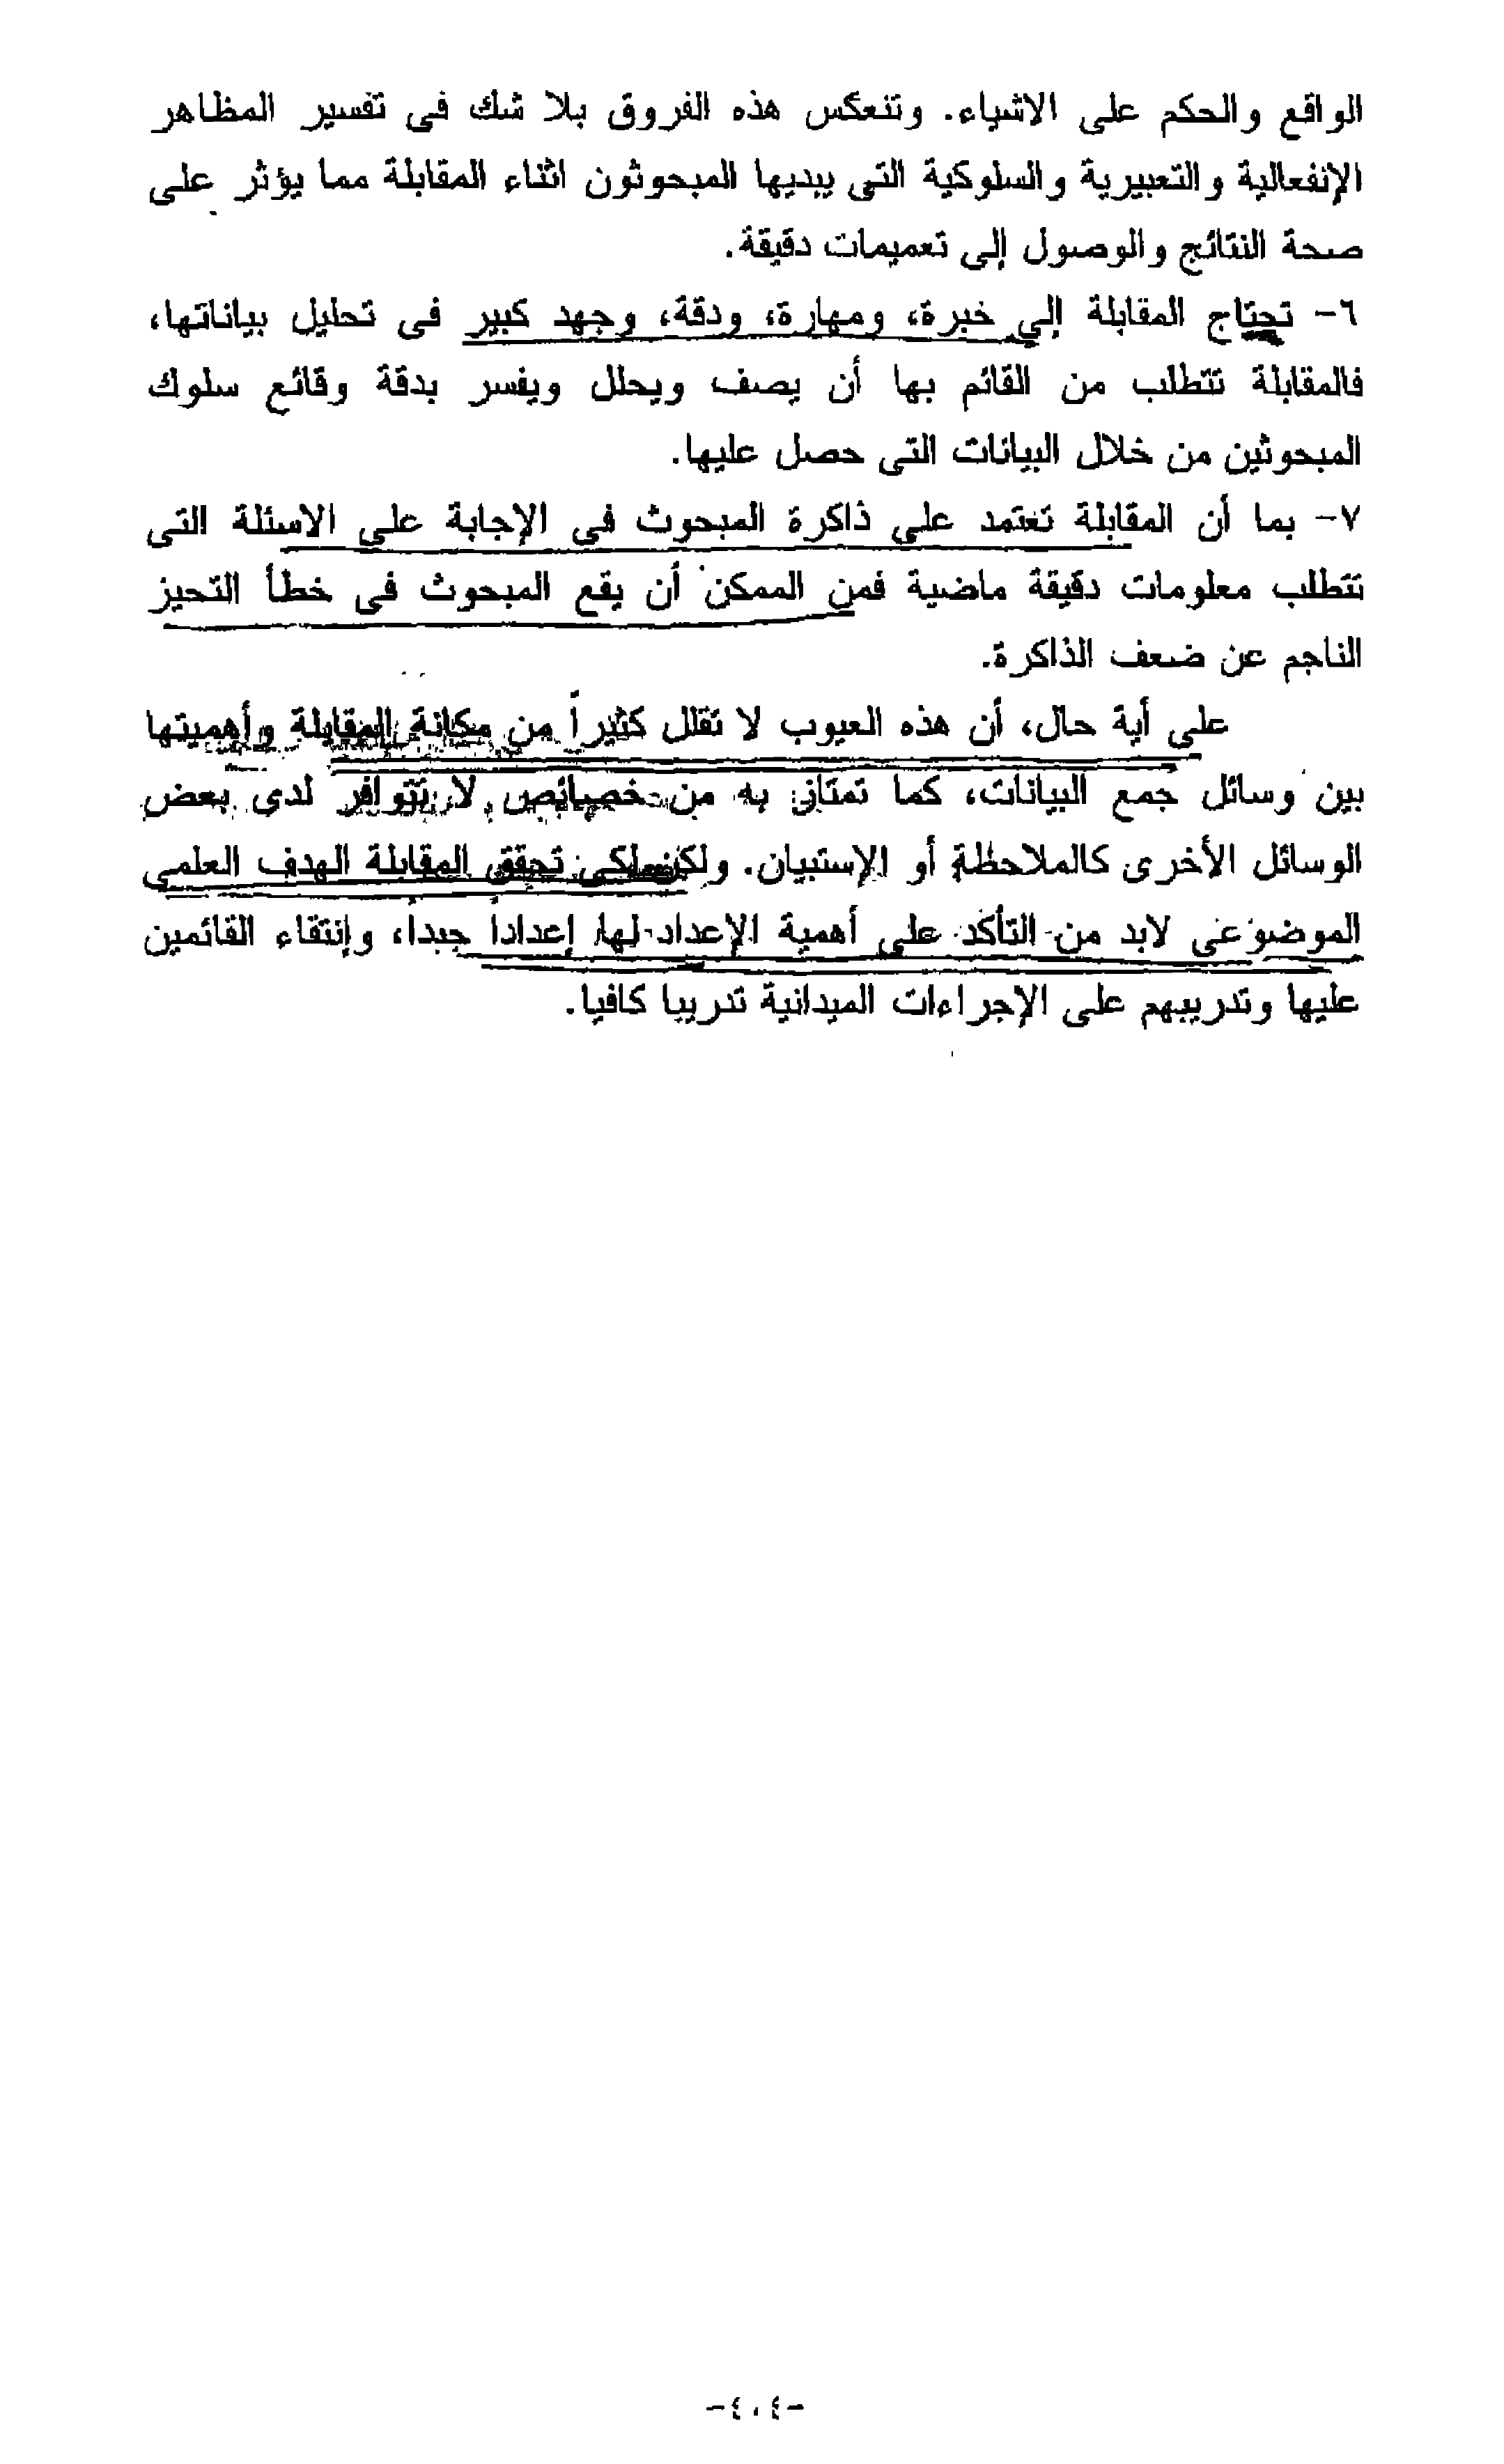 الواقع والحكم على الاشياء. وتنعكس هذه الفروق بلا شك فى تفسير المظاهر
الإنفعالية والتعبيرية والسلوكية التى يبديها المبحوثون اثناء المقابلة مما يؤثر على
صحة النتائج والوصول إلى تعميمات دقيقة.
٦- تحتاج المقابلة إلي خبرة، ومهارة، ودقة، وجهد كبير فى تحليل بياناتها،
فالمقابلة تتطلب من القائم بها أن يصف ويحلل ويفسر بدقة وقائع سلوك
المبحوثين من خلال البيانات التى حصل عليها.
٧- بما أن المقابلة تعتمد على ذاكرة المبحوث فى الإجابة على الاسئلة التى
تتطلب معلومات دقيقة ماضية فمن الممكن أن يقع المبحوث فى خطأ التحيز
الناجم عن ضعف الذاكرة.
على أية حال، أن هذه العيوب لا تقلل كثيراً من مكانة المقابلة وأهميتها
بين وسائل جمع البيانات، كما تمتاز به من خصائص لا تتوافر لدى بعض
الوسائل الأخرى كالملاحظة أو الإستبيان. ولكن لكى تحقق المقابلة الهدف العلمى
الموضوعى لابد من التأكد على أهمية الإعداد لها إعدادا جيدا، وإنتقاء القائمين
عليها وتدريبهم على الإجراءات الميدانية تدريبا كافيا.
-٤٠٤-